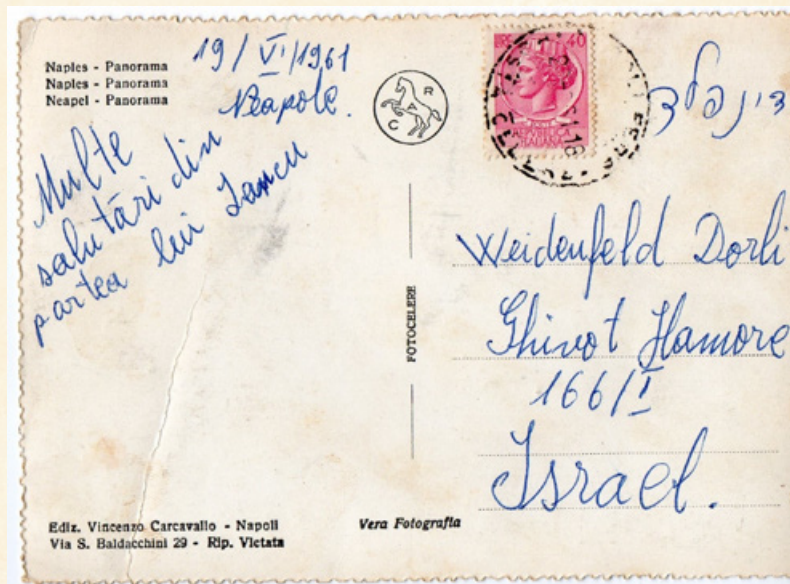 Naples - Panorama
Naples - Panorama
Neapel - Panorama
19/VI/1961
Neapole.
Multe
salutări din
partea lui Iancu
CAR
LIRE 40
POSTE
REPVBBLICA
ITALIANA
Weidenfeld Dorli
Ghivot Hamore
166/I
Israel.
FOTOCELERE
Ediz. Vincenzo Carcavallo - Napoli
Via S. Baldacchini 29 - Rip. Vietata
Vera Fotografia